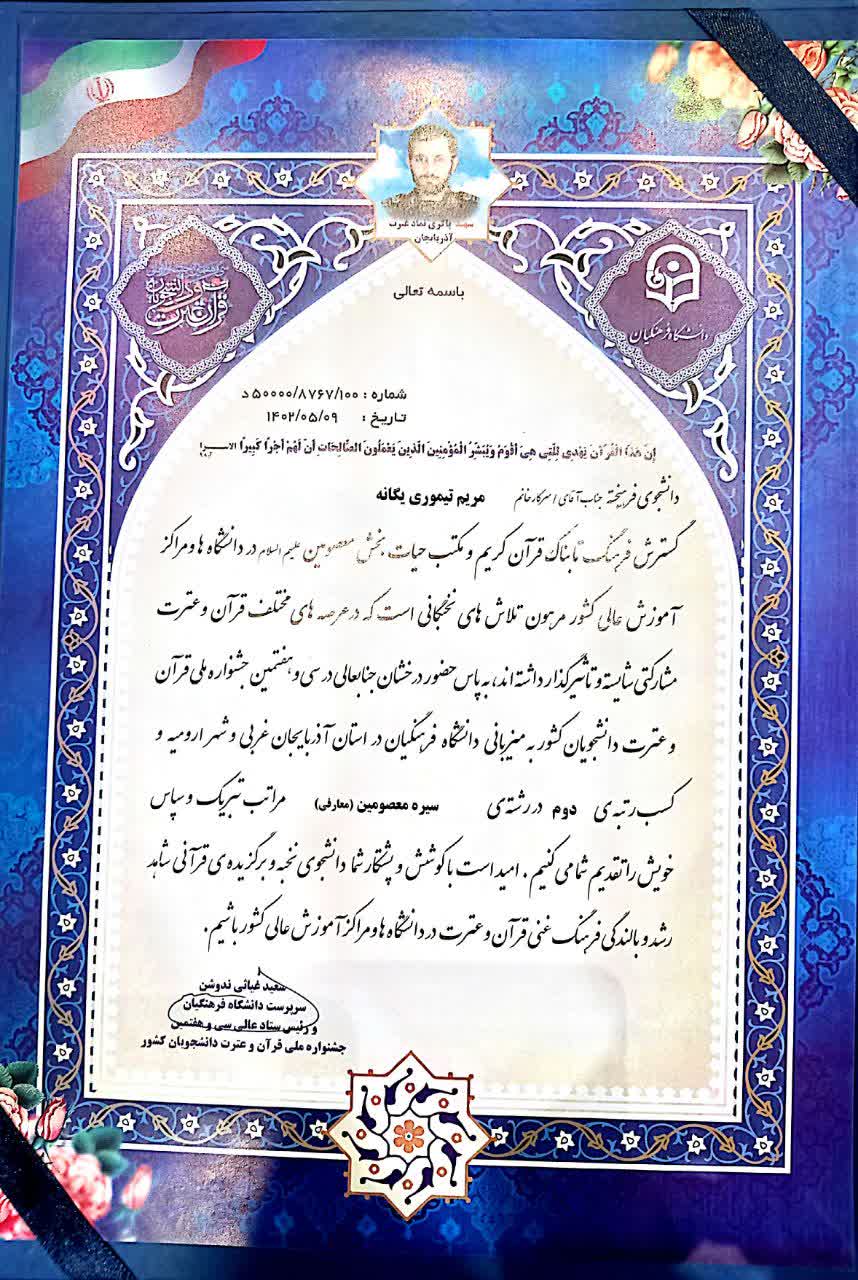 باتری نماد غیرت
آذربایجان
قرآن عترت
دانشگاه فرهنگیان
باسمه تعالی
شماره : ۵۰۰۰۰/۸۷۶۷/۱۰۰ د
تاریخ : ۱۴۰۲/۰۵/۰۹
إِنَّ هَذَا الْقُرْآنَ يَهْدِي لِلَّتِي هِيَ أَقْوَمُ وَيُبَشِّرُ الْمُؤْمِنِينَ الَّذِينَ يَعْمَلُونَ الصَّالِحَاتِ أَنَّ لَهُمْ أَجْرًا كَبِيرًا
دانشجوی فرهیخته جناب آقای / سرکار خانم مریم تیموری یگانه
گسترش فرهنگ تابناک قرآن کریم و مکتب حیات بخش معصومین علیهم السلام در دانشگاه ها و مراکز
آموزش عالی کشور مرهون تلاش های نخبگانی است که در عرصه های مختلف قرآن و عترت
مشارکتی شایسته و تأثیرگذار داشته اند، به پاس حضور درخشان جنابعالی در سی و هفتمین جشنواره ملی قرآن
و عترت دانشجویان کشور به میزبانی دانشگاه فرهنگیان در استان آذربایجان غربی و شهر ارومیه و
کسب رتبه ی دوم در رشته ی سیره معصومین (معارفی) مراتب تبریک و سپاس
خویش را تقدیم شما می کنیم . امید است با کوشش و پشتکار شما دانشجوی نخبه و برگزیده ی قرآنی شاهد
رشد و بالندگی فرهنگ غنی قرآن و عترت در دانشگاه ها و مراکز آموزش عالی کشور باشیم.
سعید غیاثی ندوشن
سرپرست دانشگاه فرهنگیان
و رئیس ستاد عالی سی و هفتمین
جشنواره ملی قرآن و عترت دانشجویان کشور